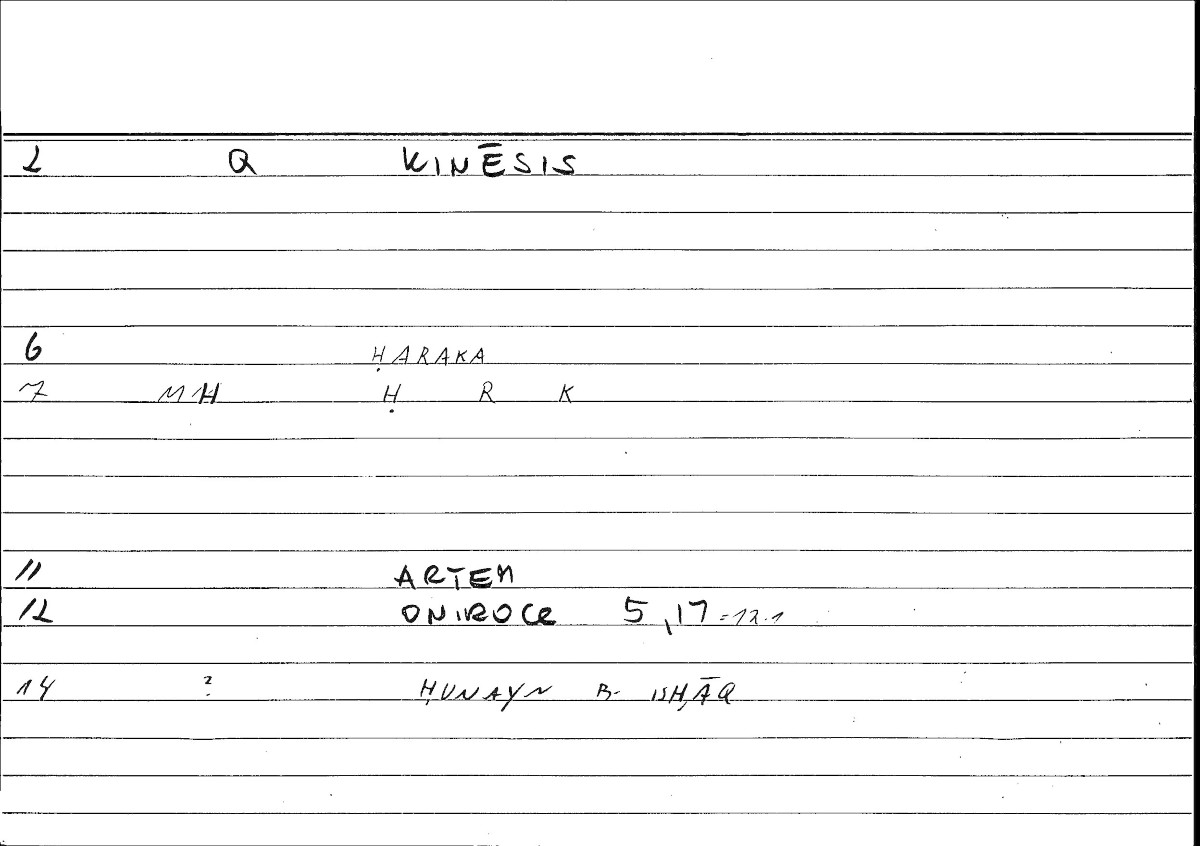 2 Q KINĒSIS
6 ḤARAKA
7 MH Ḥ R K
11 ARTEM
12 ONIROCR 5,17 =12.1
14 ? ḤUNAYN B. ISḤĀQ